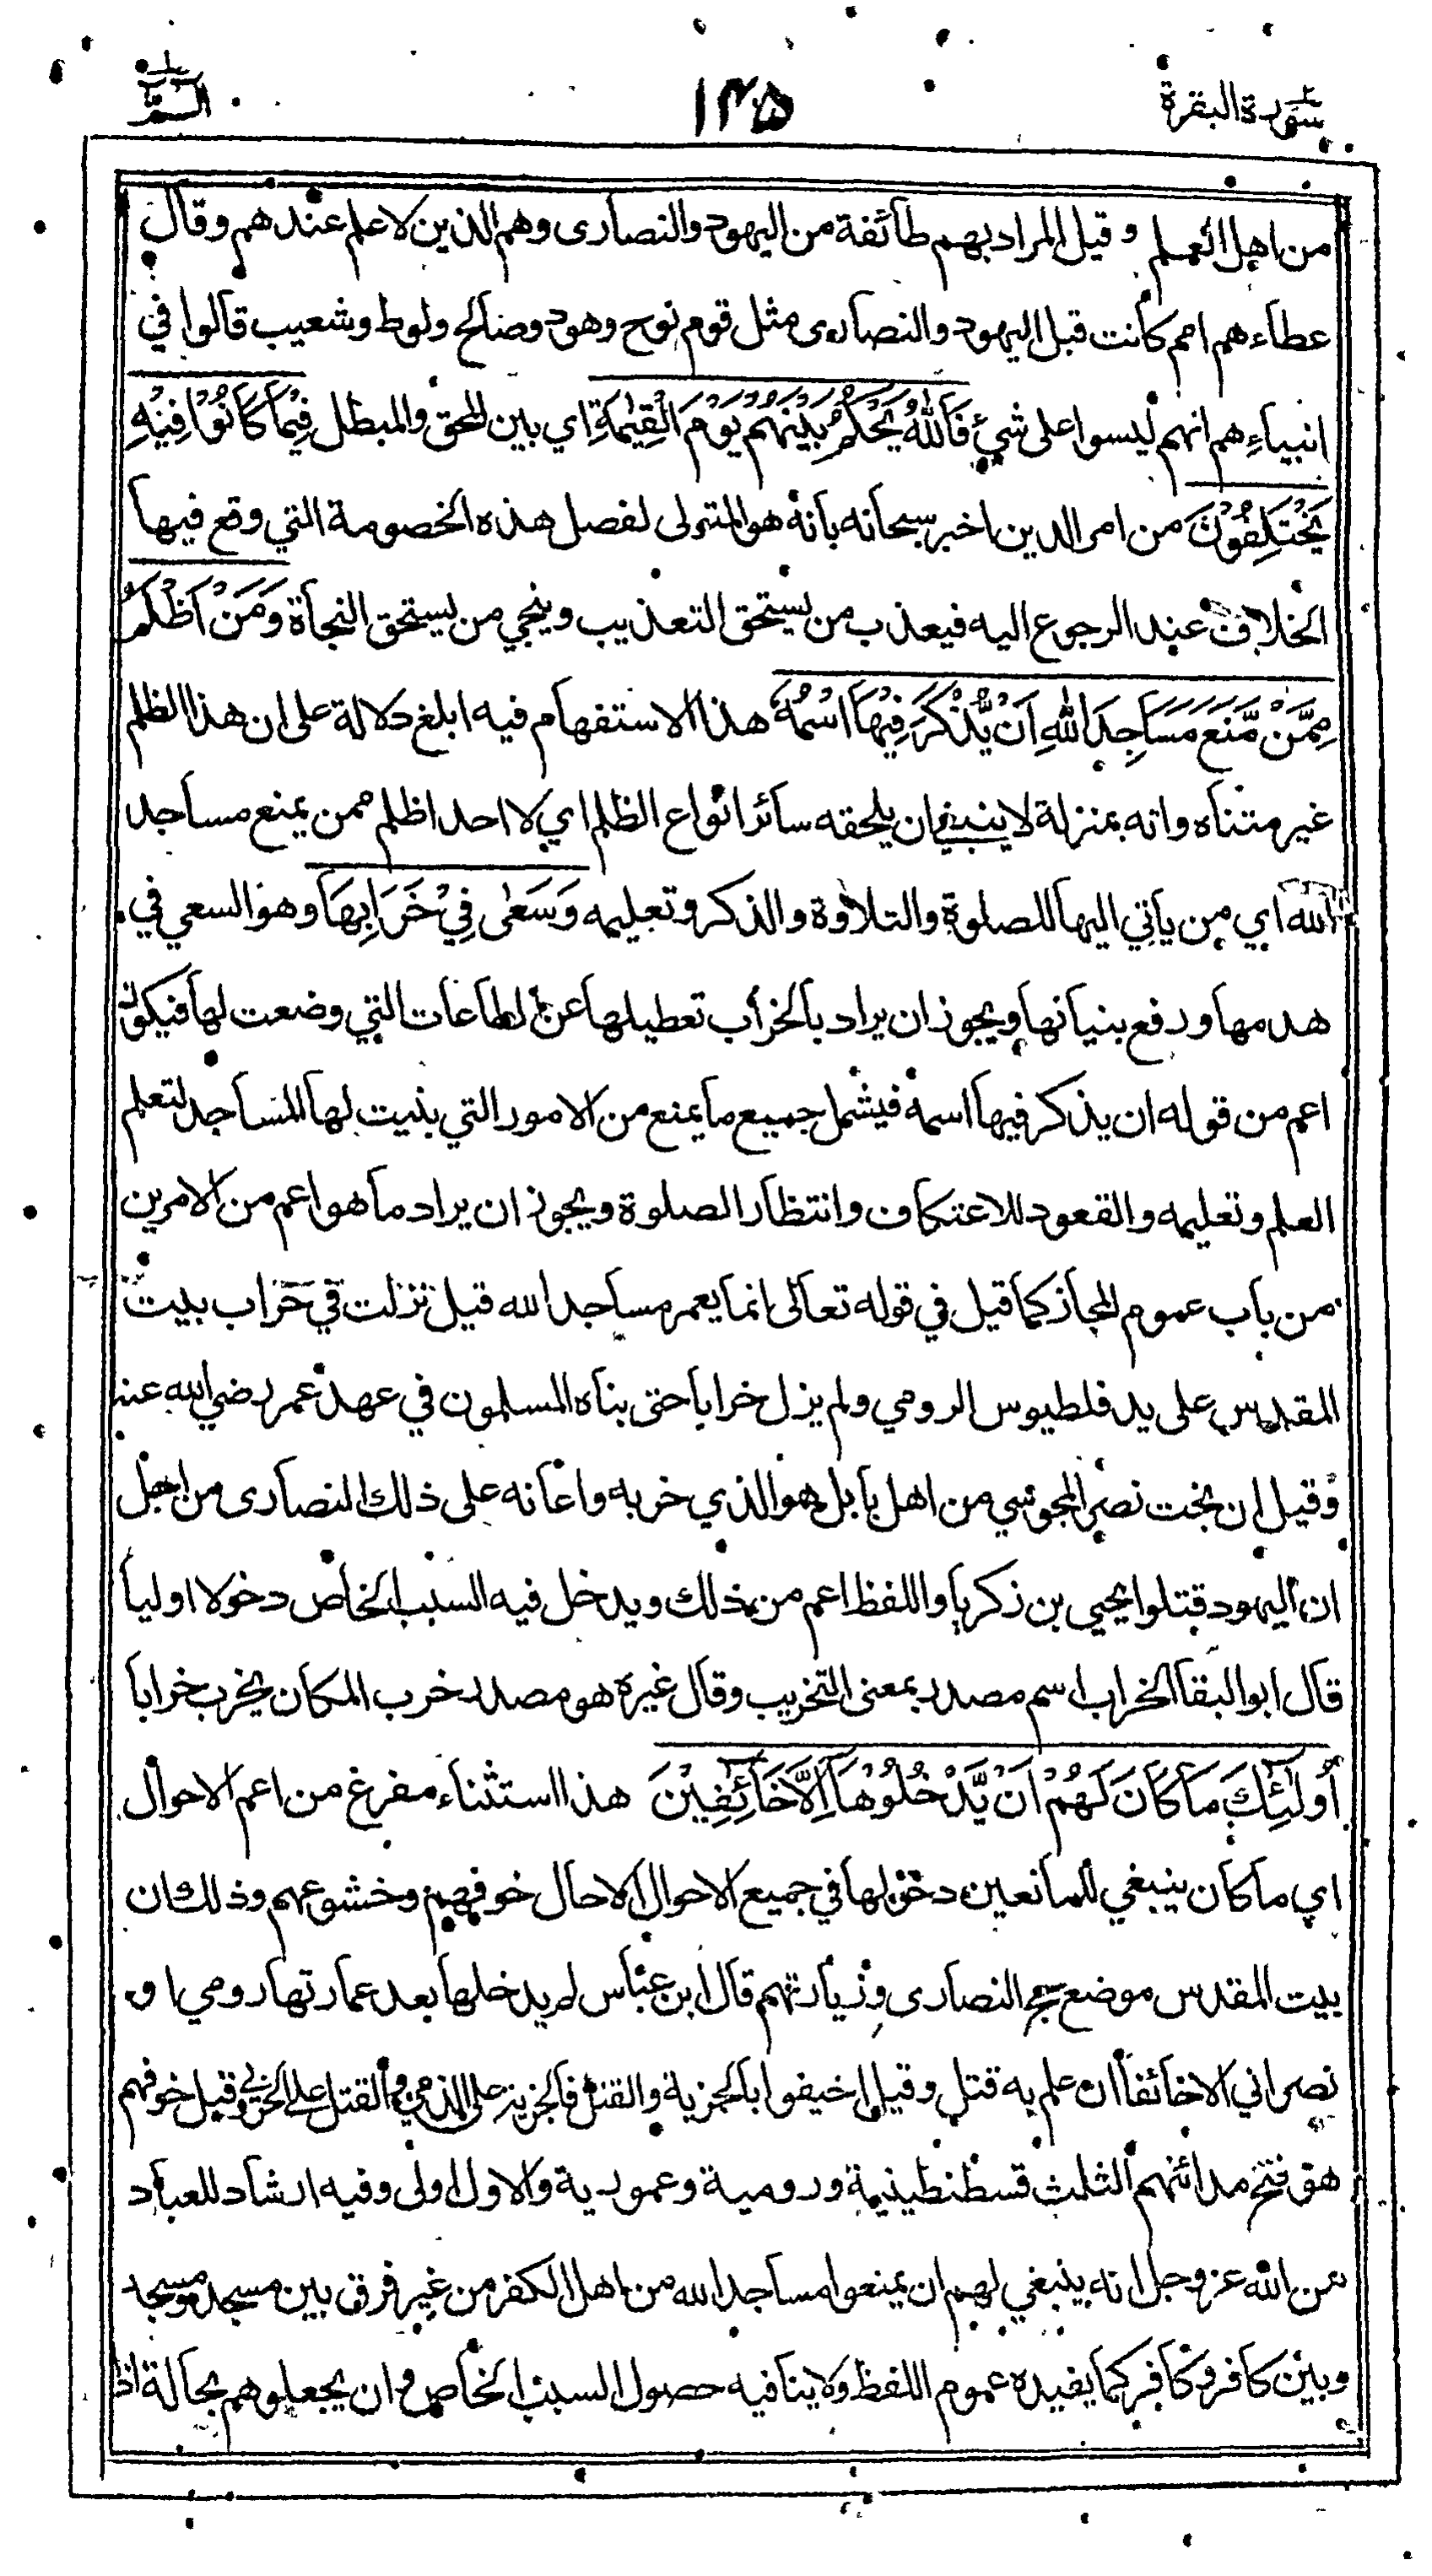 سورة البقرة
١٤٥
الٓمّٓ
من اهل العلم وقيل المراد بهم طائفة من اليهود والنصارى وهم الذين لا علم عندهم وقال
عطاء هم امم كانت قبل اليهود والنصارى مثل قوم نوح وهود وصالح ولوط وشعيب قالوا في
انبياءهم انهم ليسوا على شيئ فَاللّٰهُ يَحْكُمُ بَيْنَهُمْ يَوْمَ الْقِيٰمَةِ اي بين المحق والمبطل فِيْمَا كَانُوْا فِيْهِ
يَخْتَلِفُوْنَ من امر الدين اخبر سبحانه بانه هو المتولى لفصل هذه الخصومة التي وقع فيها
الخلاف عند الرجوع اليه فيعذب من يستحق التعذيب وينجي من يستحق النجاة وَمَنْ اَظْلَمُ
مِمَّنْ مَّنَعَ مَسَاجِدَ اللّٰهِ اَنْ يُّذْكَرَ فِيْهَا اسْمُهُ هذا الاستفهام فيه ابلغ دلالة على ان هذا الظلم
غير متناه وانه بمنزلة لا ينبغي ان يلحقه سائر انواع الظلم اي لا احد اظلم ممن يمنع مساجد
الله اي من ياتي اليها للصلوة والتلاوة والذكر وتعليمه وَسَعٰى فِيْ خَرَابِهَا وهو السعي في
هدمها ورفع بنيانها ويجوز ان يراد بالخراب تعطيلها عن الطاعات التي وضعت لها فيكون
اعم من قوله ان يذكر فيها اسمه فيشمل جميع ما يمنع من الامور التي بنيت لها المساجد لتعلم
العلم وتعليمه والقعود للاعتكاف وانتظار الصلوة ويجوز ان يراد ما هو اعم من الامرين
من باب عموم المجاز كما قيل في قوله تعالى انما يعمر مساجد الله قيل نزلت في خراب بيت
المقدس على يد فلطيوس الرومي ولم يزل خرابا حتى بناه المسلمون في عهد عمر رضي الله عنه
وقيل ان بخت نصر المجوسي من اهل بابل هو الذي خربه واعانه على ذلك النصارى من اجل
ان اليهود قتلوا يحيى بن زكريا واللفظ اعم من ذلك ويدخل فيه السبب الخاص دخولا اوليا
قال ابو البقا الخراب اسم مصدر بمعنى التخريب وقال غيره هو مصدر خرب المكان يخرب خرابا
اُولٰئِكَ مَا كَانَ لَهُمْ اَنْ يَّدْخُلُوْهَا اِلَّا خَائِفِيْنَ هذا استثناء مفرغ من اعم الاحوال
اي ما كان ينبغي للمانعين دخولها في جميع الاحوال الا حال خوفهم وخشوعهم وذلك ان
بيت المقدس موضع حج النصارى وزيارتهم قال ابن عباس لم يدخلها بعد عمارتها رومي او
نصراني الا خائفا ان علم به قتل وقيل اخيفوا بالجزية والقتل فالجزية على الذمي والقتل على الحربي وقيل خوفهم
هو فتح مدائنهم الثلث قسطنطينية ورومية وعمورية والاول اولى وفيه ارشاد للعباد
من الله عز وجل انه ينبغي لهم ان يمنعوا مساجد الله من اهل الكفر من غير فرق بين مسجد ومسجد
وبين كافر وكافر كما يفيده عموم اللفظ ولا ينافيه حصول السبب الخاص وان يجعلوهم بحالة اذا